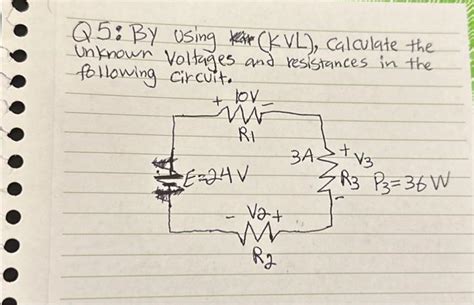 Q5: By Using (KVL), Calculate the
Unknown Voltages and resistances in the
following Circuit.
+ 10V -
R1
3A + V3
E=24V R3 P3=36W
-
- V2 +
R2